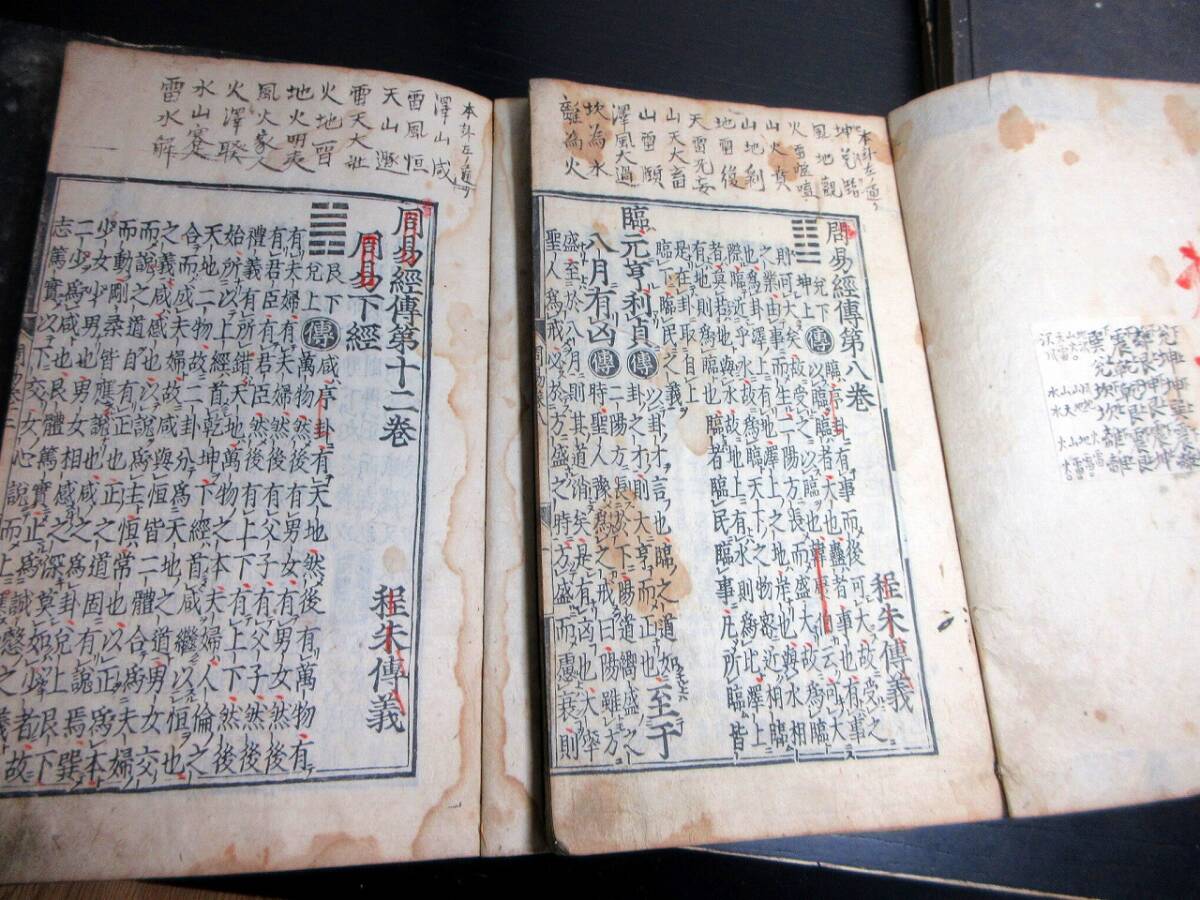 本卦左ノ通リ
坤兌臨
風地觀
火雷噬嗑
山火賁
山地剥
地雷復
天雷无妄
山天大畜
山雷頤
澤風大過
坎為水
離為火
周易經傳第八卷 程朱傳義
兌下
坤上
傳 臨序卦有事而後可大故受之
以臨臨者大也蠱者事也有事
則可大矣故受之以臨也韓康伯云可大
之業由事而生二陽方長而盛大故爲臨
也爲卦澤上有地澤上之地岸也與水相
際臨近乎水故爲臨天下之物密近相臨
者莫若地與水故地上有水則爲比澤上
有地則爲臨也臨者臨民臨事凡所臨皆
是在卦取自上
臨下臨民之義
臨元亨利貞 傳 以卦才言也臨之道如
卦之才則大亨而正也 至于
八月有凶 傳 二陽方長於下陽道嚮盛之
時聖人豫爲之戒曰陽雖方
盛至於八月則其道消矣是有凶也大率
聖人爲戒必於方盛之時方盛而慮衰則
本卦左ノ通リ
澤山咸
雷風恒
天山遯
雷天大壯
火地晋
地火明夷
風火家人
火澤睽
水山蹇
雷水解
周易經傳第十二卷 程朱傳義
周易下經
艮下
兌上
傳 咸序卦有天地然後有萬物有
萬物然後有男女有男女然後
有夫婦有夫婦然後有父子有父子然後
有君臣有君臣然後有上下有上下然後
禮義有所錯天地萬物之本夫婦人倫之
始所以上經首乾坤下經首咸繼以恒也
天地二物故二卦分爲天地之道男女交
合而成夫婦故咸與恒皆二體合爲夫婦
之義咸感也以說爲主恒常也以正爲本
而說之道自有正也正之道固有說焉巽
而動剛柔皆應說也咸之爲卦兌上艮下
少女少男也男女相感之深莫如少者故
二少爲咸也艮體篤實止爲誠慤之義
志篤實以下交女心說而上應